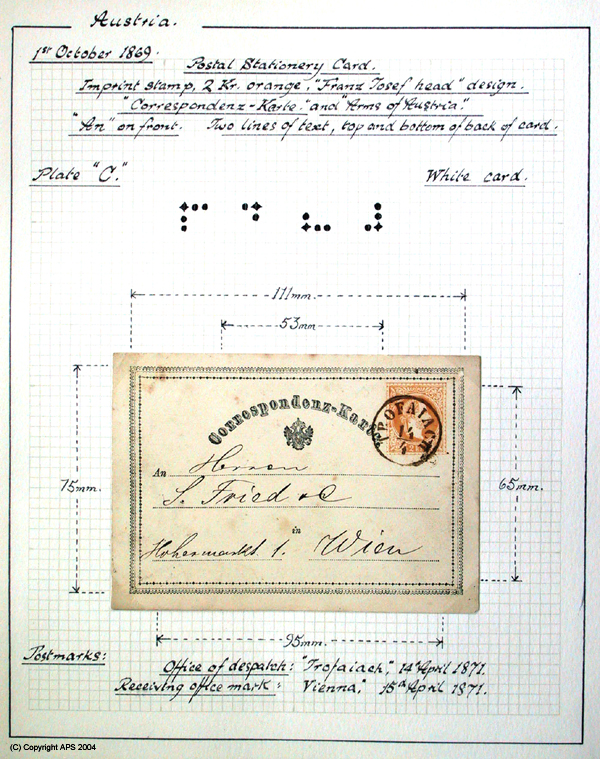 Austria.
1st October 1869.
Postal Stationery Card.
Imprint stamp, 2 Kr. orange, "Franz Josef head" design.
"Correspondenz-Karte." and "Arms of Austria."
"An" on front. Two lines of text, top and bottom of back of card.
Plate "C."
White card.
111mm.
53mm
Correspondenz-Karte
TROFAIACH
14
4
An Herrn
S. Fried & C
in
Hohermarkt 1. Wien
75mm.
65mm.
95mm.
Postmarks:
Office of despatch: "Trofaiach", 14th April 1871.
Receiving office mark: Vienna", 15th April 1871.
(C) Copyright APS 2004